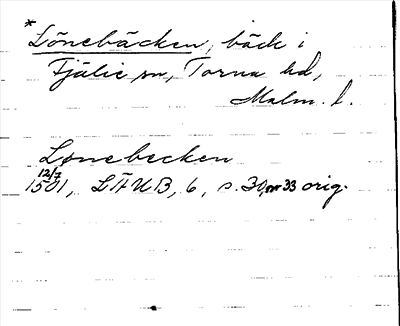 *Lönebäcken, bäck i
Fjälie sn, Torna hd,
Malm. l.
Lonebecken
12/7
1501, LÄUB, 6, s. 30, nr 33 orig.